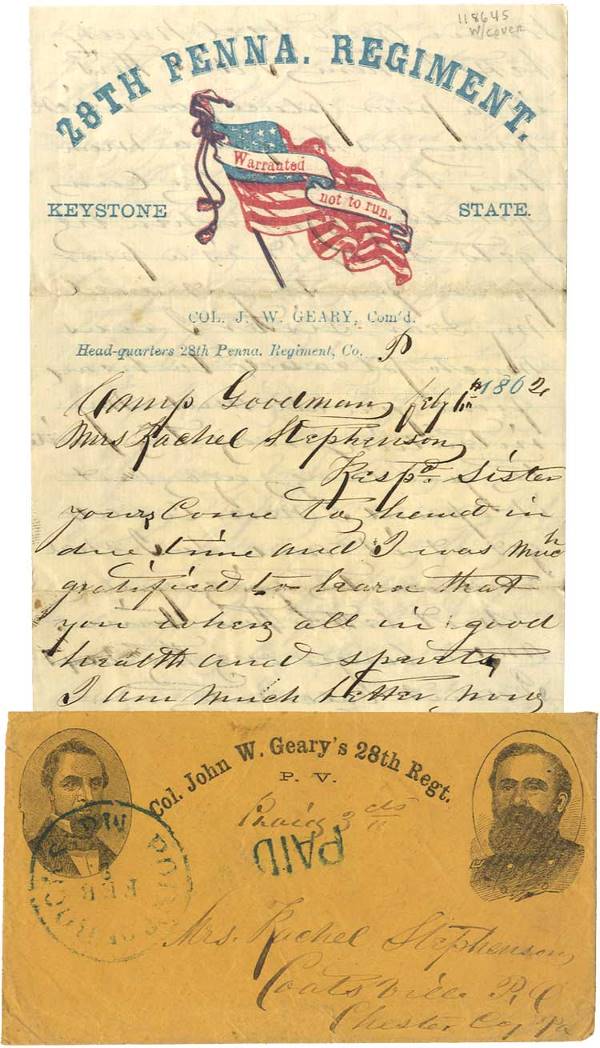 118645
W/cover
28TH PENNA. REGIMENT.
Warranted
not to run.
KEYSTONE STATE.
COL. J. W. GEARY, Com'd.
Head-quarters 28th Penna. Regiment, Co. P
Camp Goodman, feby 1862
Mrs Rachel Stephenson
Respd. Sister
yours Come to hand in
due time and I was much
gratified to learn that
you where all in good
health and spirits,
I am much better now
Col. John W. Geary's 28th Regt.
P. V.
3 cts
PAID
POINT OF ROCKS MD
FEB
Mrs. Rachel Stephenson,
Coatsville P. O
Chester Co, Pa